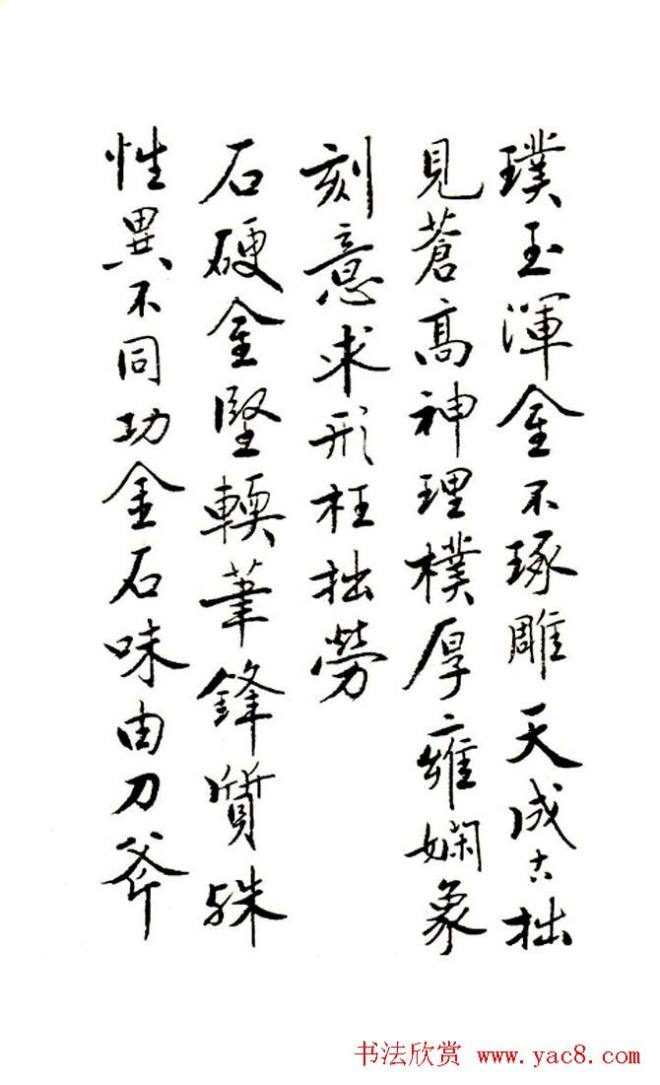 璞玉渾金不琢雕天成古拙
見蒼高神理樸厚雍嫻象
刻意求形枉拙勞
石硬金堅轉筆鋒質殊
性異不同功金石味由刀斧
书法欣赏 www.yac8.com